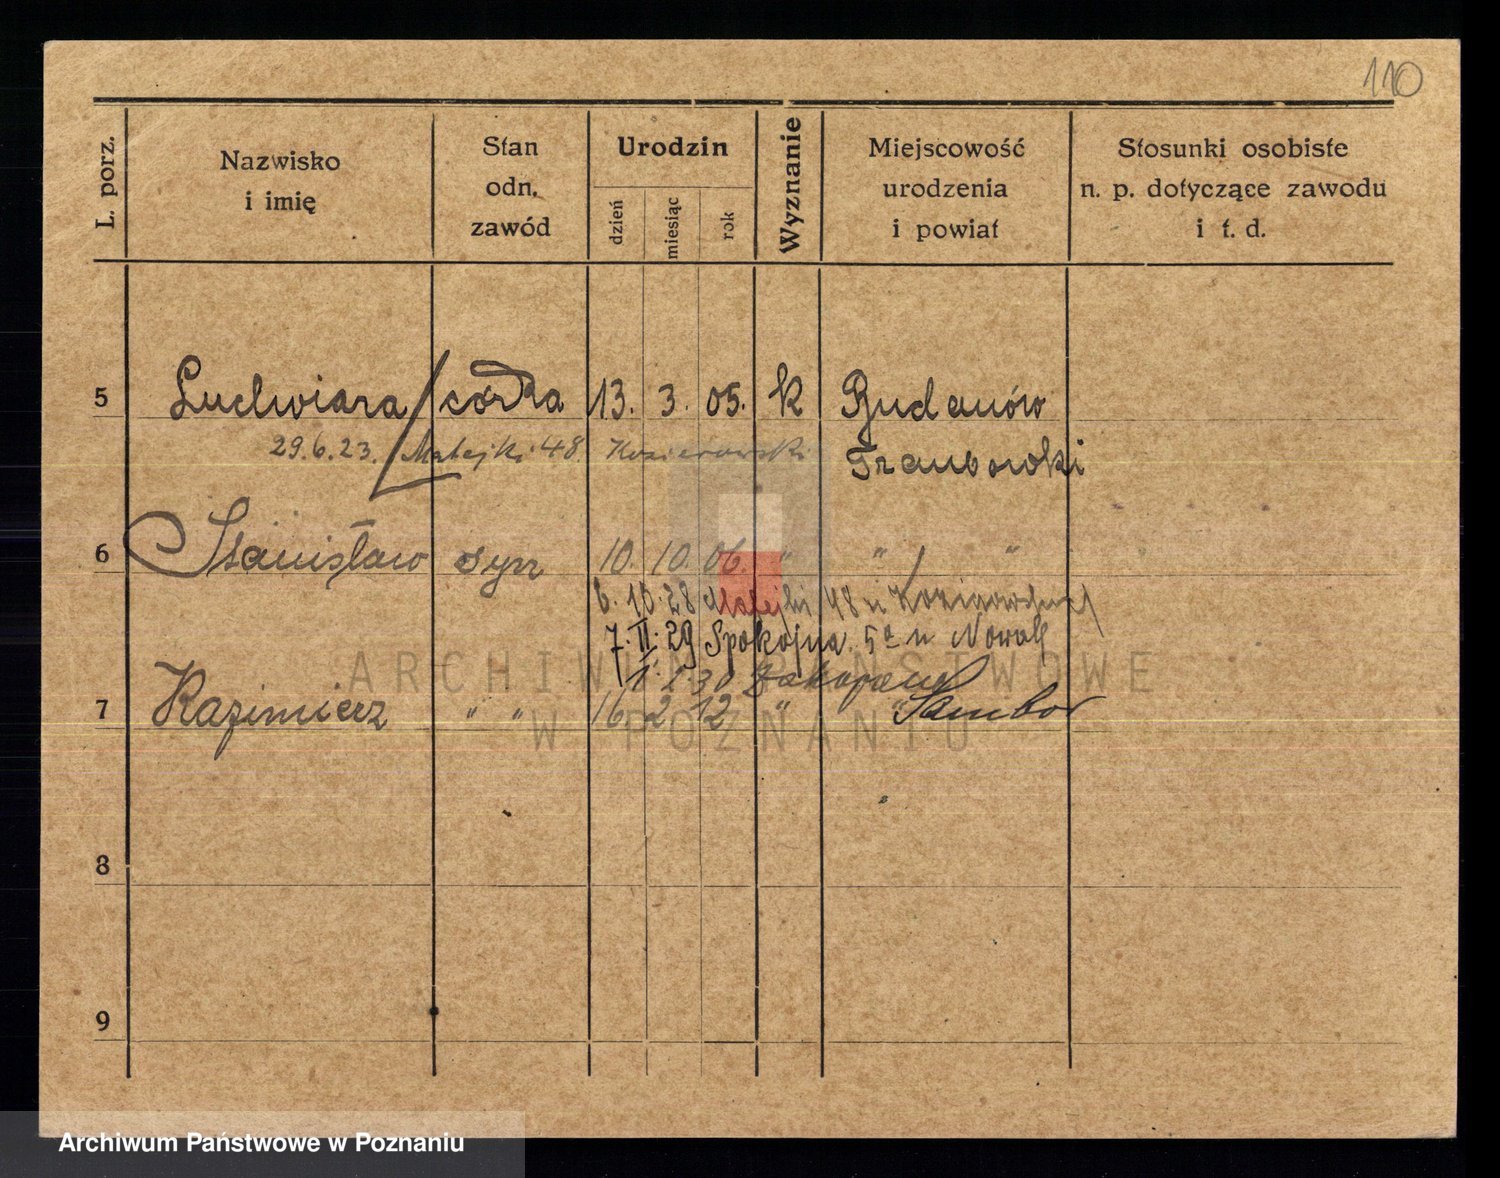 110
L. porz.
Nazwisko i imię
Stan odn. zawód
Urodzin
dzień
miesiąc
rok
Wyznanie
Miejscowość urodzenia i powiat
Stosunki osobiste n. p. dotyczące zawodu i t. d.
5 Ludwiara córka 13. 3. 05. k Budanów
29.6.23. Matejki 48. Trambowski
6 Stanisław syn 10. 10. 06. " " "
6. 10. 28 Matejki 48 u
7. II. 29 Spokojna 5a u Nowak
1. 1. 30 Zakopane
7 Kazimierz " " 16 2 12 " Sambor
8
9
ARCHIWUM PAŃSTWOWE
W POZNANIU
Archiwum Państwowe w Poznaniu